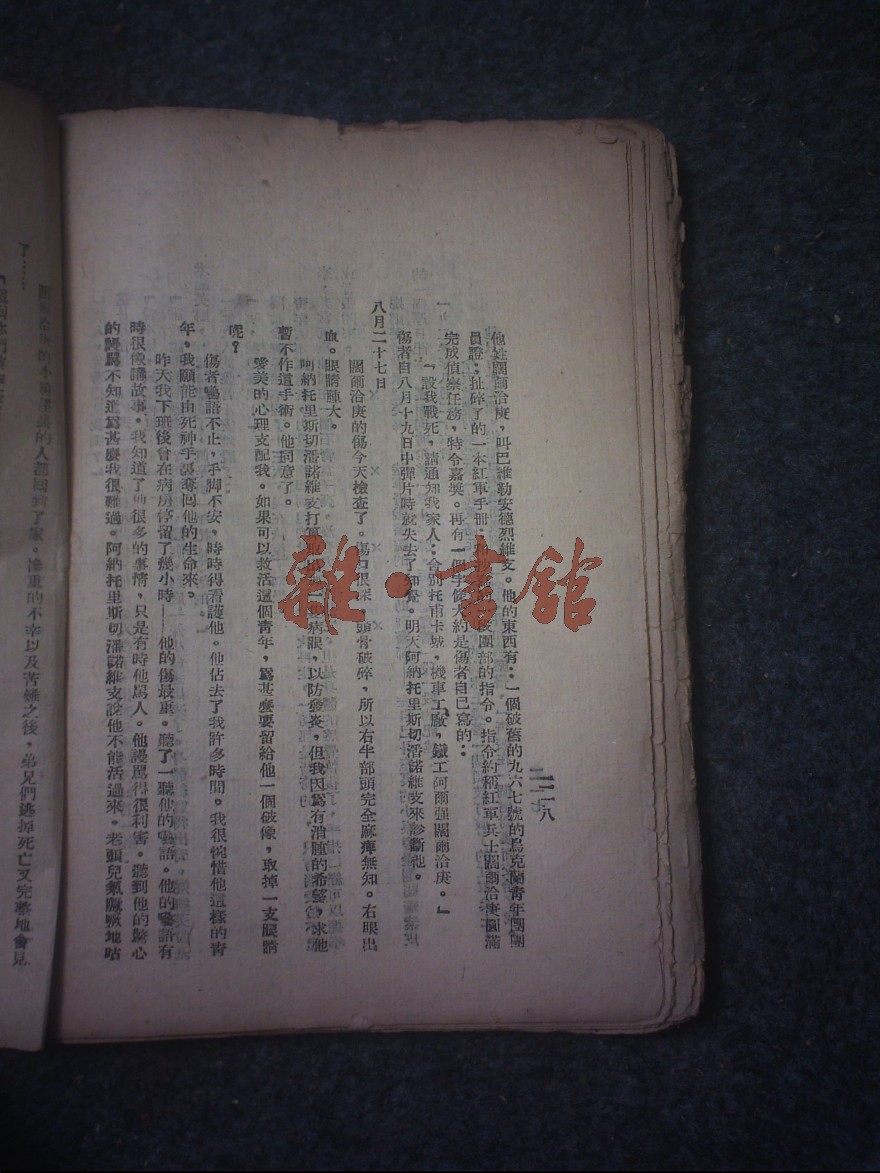 二二八
他姓闊爾洽庚，叫巴維勒安德烈維支。他的東西有：一個破舊的九六七號的烏克蘭青年團團
員證；扯碎了的一本紅軍手冊；團部的指令。指令約稱紅軍兵士闊爾洽庚圓滿
完成偵察任務，特令嘉獎。再有一個字條大約是傷者自己寫的：
「設我戰死，請通知我家人：舍別托甫卡城，機車工廠，鐵工阿爾强闊爾洽庚。」
傷者自八月十九日中彈片時就失去了知覺。明天阿納托里斯切潘諾維支來診斷他。
八月二十七日
闊爾洽庚的傷今天檢查了。傷口很深，頭骨破碎，所以右半部頭完全麻痺無知。右眼出
血。眼睛腫大。
阿納托里斯切潘諾維支打算取出病眼，以防發炎，但我因爲有消腫的希望，求他
暫不作這手術。他同意了。
愛美的心理支配我。如果可以救活這個青年，爲甚麼要留給他一個破像，取掉一支眼睛
呢？
傷者囈語不止，手脚不安，時時得看護他。他佔去了我許多時間。我很惋惜他這樣的青
年，我願能由死神手裏奪回他的生命來。
昨天我下班後會在病房停留了幾小時——他的傷最重。聽了一聽他的囈語。他的囈語有
時很像講故事。我知道了他很多的事情，只是有時他罵人。他謾罵得很利害。聽到他的驚心
的謾罵不知道爲甚麼我很難過。阿納托里斯切潘諾維支說他不能活過來。老頭兒氣噘噘地咕
了……
的人都回到了家。慘重的不幸以及苦難之後，弟兄們逃掉死亡又完整地會見
雜·書館